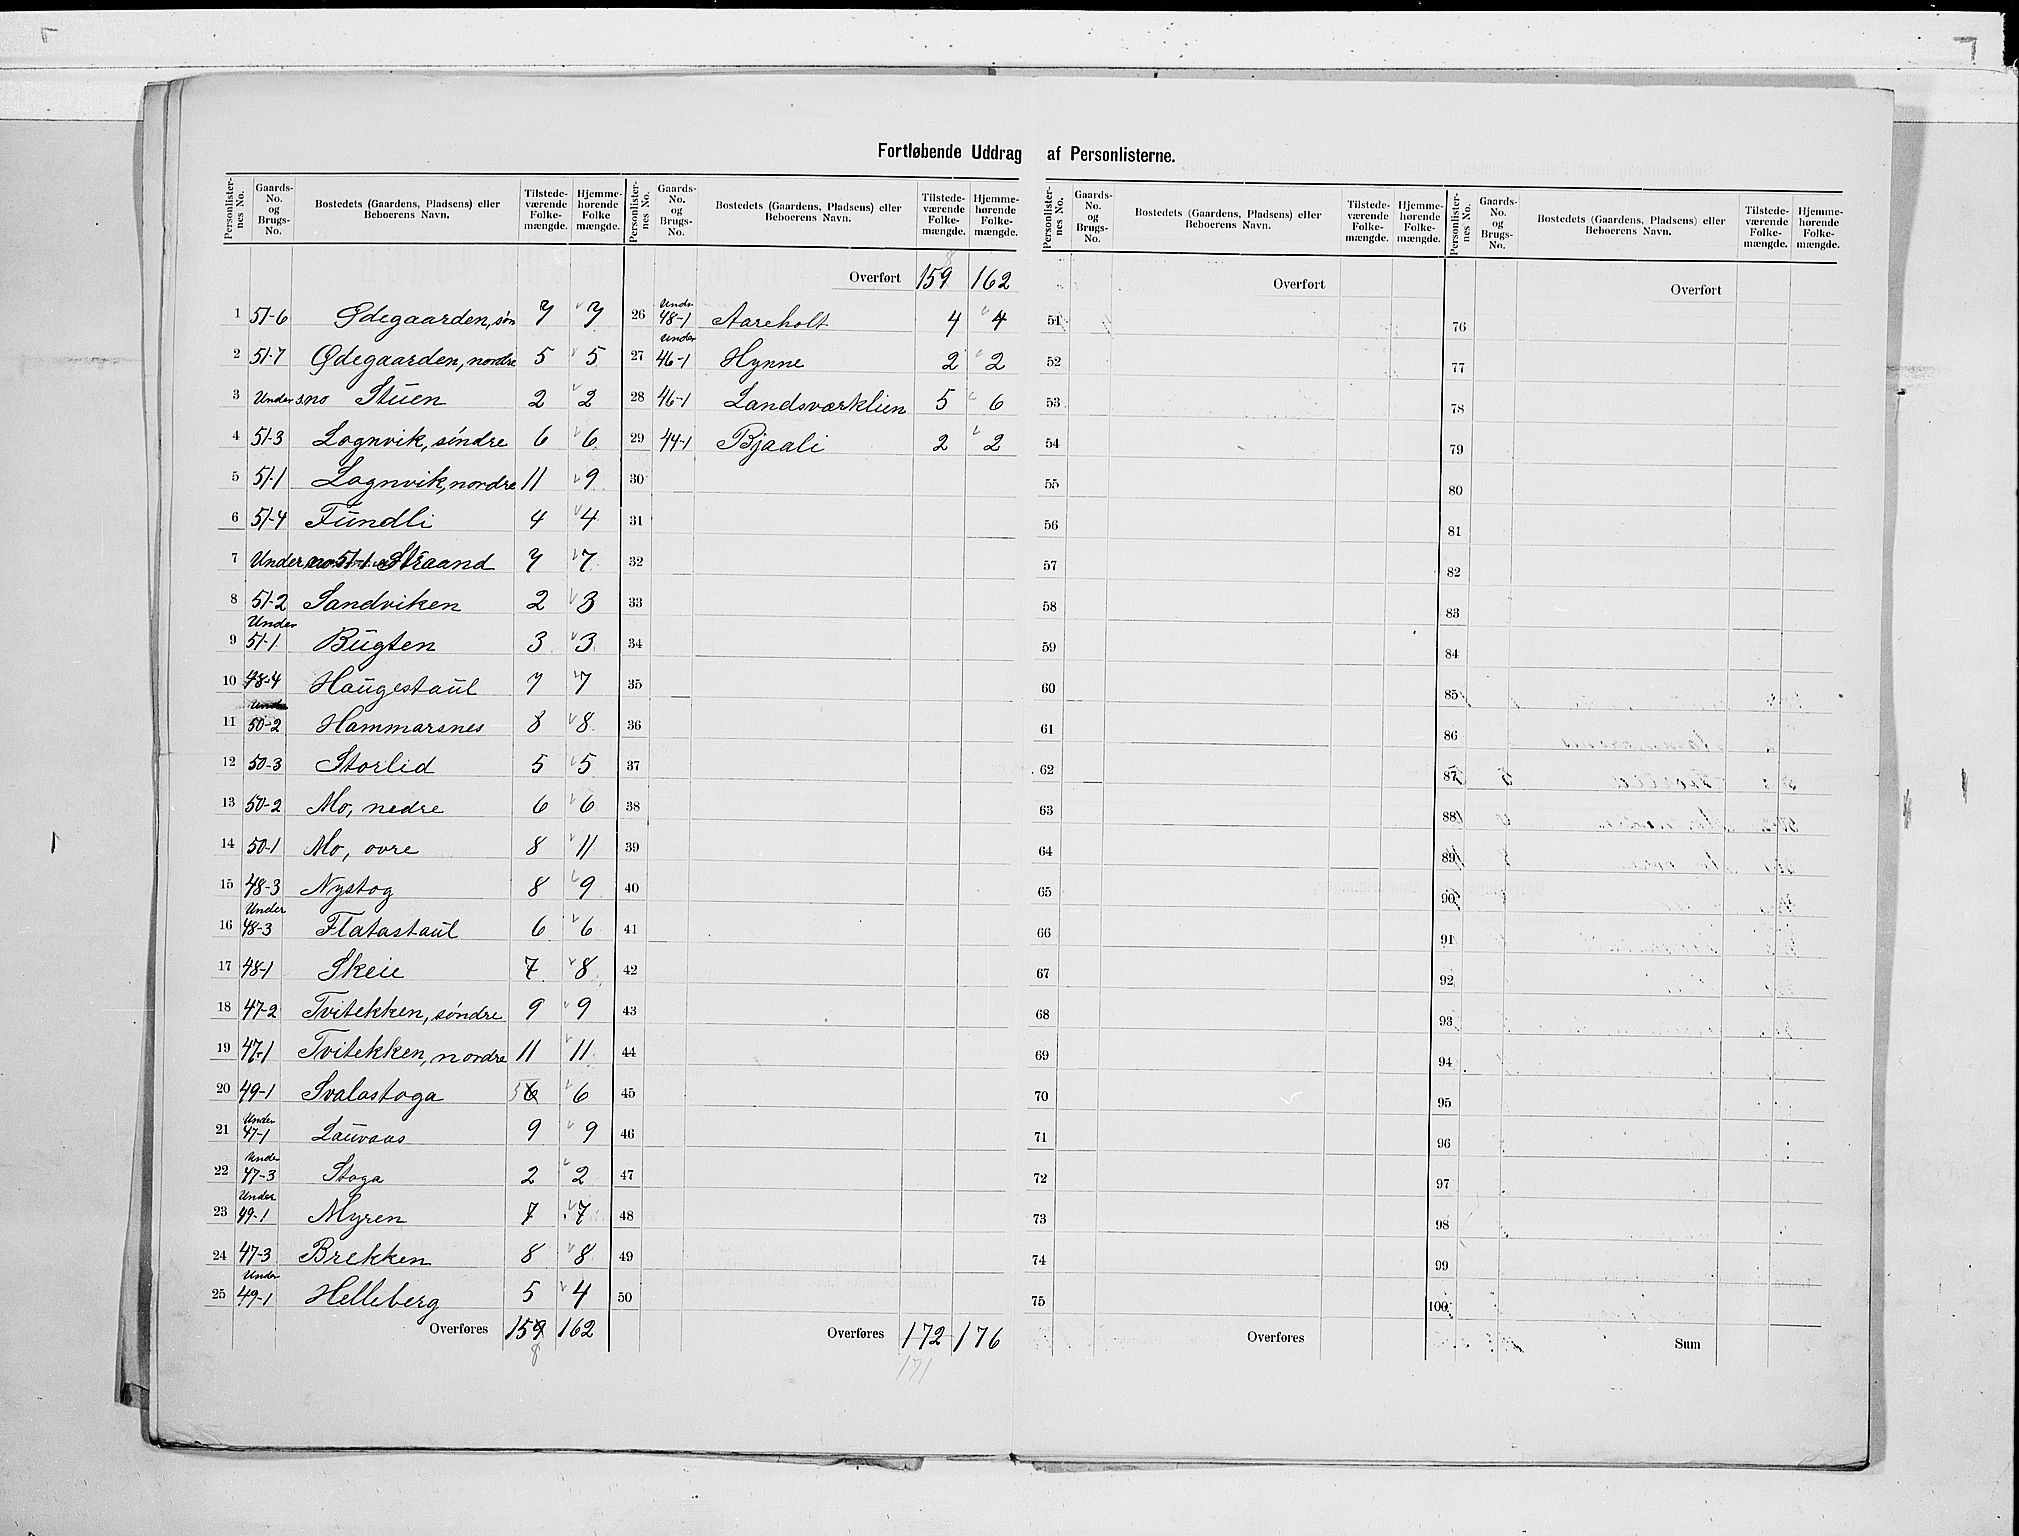 Fortløbende Uddrag af Personlisterne.
Personlister-nes No. | Gaards-No. og Brugs-No. | Bostedets (Gaardens, Pladsens) eller Beboerens Navn. | Tilstede-værende Folke-mængde. | Hjemme-hørende Folke mængde.
1 51-6 Ødegaarden, søn 7 7
2 51-7 Ødegaarden, nordre 5 5
3 Under s.no Stuen 2 2
4 51-3 Lognvik, søndre 6 6
5 51-1 Lognvik, nordre 11 9
6 51-4 Fundli 4 4
7 Under no 51-1 Straand 7 7
8 51-2 Sandviken 2 3
9 Under 51-1 Bugten 3 3
10 48-4 Haugestaul 7 7
11 Under 50-2 Hammarsnes 8 8
12 50-3 Storlid 5 5
13 50-2 Mo, nedre 6 6
14 50-1 Mo, ovre 8 11
15 48-3 Nystog 8 9
16 Under 48-3 Flatastaul 6 6
17 48-1 Skeie 7 8
18 47-2 Tvitekken, søndre 9 9
19 47-1 Tvitekken, nordre 11 11
20 49-1 Svalastoga 5 6 6
21 Under 47-1 Lauvaas 9 9
22 Under 47-3 Stoga 2 2
23 Under 49-1 Myren 7 7
24 47-3 Brekken 8 8
25 Under 49-1 Helleberg 5 4
Overføres 159 162
8
Personlister-nes No. | Gaards-No. og Brugs-No. | Bostedets (Gaardens, Pladsens) eller Beboerens Navn. | Tilstede-værende Folke-mængde. | Hjemme-hørende Folke-mængde.
8
Overført 159 162
26 Under 48-1 Aareholt 4 4
27 Under 46-1 Hynne 2 2
28 46-1 Landsværklien 5 6
29 44-1 Bjaali 2 2
30
31
32
33
34
35
36
37
38
39
40
41
42
43
44
45
46
47
48
49
50
Overføres 172 176
171
Personlister-nes No. | Gaards-No. og Brugs-No. | Bostedets (Gaardens, Pladsens) eller Beboerens Navn. | Tilstede-værende Folke-mængde. | Hjemme-hørende Folke-mængde.
Overført
51
52
53
54
55
56
57
58
59
60
61
62
63
64
65
66
67
68
69
70
71
72
73
74
75
Overføres
Personlister-nes No. | Gaards-No. og Brugs-No. | Bostedets (Gaardens, Pladsens) eller Beboerens Navn. | Tilstede-værende Folke-mængde. | Hjemme-hørende Folke-mængde.
Overført
76
77
78
79
80
81
82
83
84
85
86
87
88
89
90
91
92
93
94
95
96
97
98
99
100
Sum